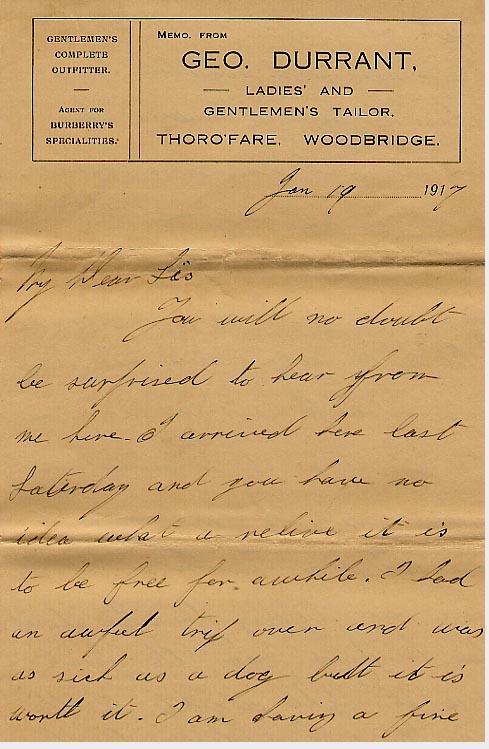 GENTLEMEN'S
COMPLETE
OUTFITTER.
AGENT FOR
BURBERRY'S
SPECIALITIES.
MEMO. FROM
GEO. DURRANT,
LADIES' AND
GENTLEMEN'S TAILOR,
THORO'FARE, WOODBRIDGE.
Jan 19 1917
My Dear Sis
You will no doubt
be surprised to hear from
me here. I arrived here last
Saterday and you have no
idea what a relive it is
to be free for awhile. I had
an awful trip over and was
as sick as a dog butt it is
worth it. I am having a fine